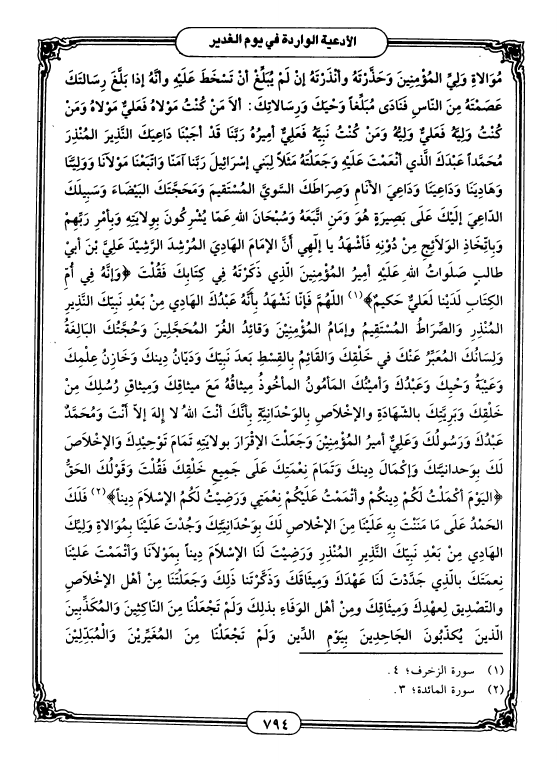 الأدعية الواردة في يوم الغدير
مُوَالاةِ وَلِيِّ المُؤْمِنِينَ وَحَذَّرْتَهُ وَأَنْذَرْتَهُ إنْ لَمْ يُبَلِّغْ أَنْ تَسْخَطَ عَلَيْهِ وَأنَّهُ إذا بَلَّغَ رِسالَتَكَ
عَصَمْتَهُ مِنَ النّاسِ فَنَادَى مُبَلِّغاً وَحْيَكَ وَرِسالاتِكَ: ألاَ مَنْ كُنْتُ مَوْلاهُ فَعَلِيٌّ مَوْلاهُ وَمَنْ
كُنْتُ وَلِيَّهُ فَعَلِيٌّ وَلِيُّهُ وَمَنْ كُنْتُ نَبِيَّهُ فَعَلِيٌّ أمِيرُهُ رَبَّنا قَدْ أجَبْنَا دَاعِيَكَ النَّذِيرَ المُنْذِرَ
مُحَمَّداً عَبْدَكَ الَّذي أنْعَمْتَ عَلَيْهِ وَجَعَلْتَهُ مَثَلاً لِبَني إسْرائِيلَ رَبَّنا آمَنّا وَاتَّبَعْنا مَوْلانَا وَوَلِيَّنا
وَهَادِيَنَا وَدَاعِيَنا وَدَاعِيَ الأنَامِ وَصِرَاطَكَ السَّوِيَّ المُسْتَقِيمَ وَمَحَجَّتَكَ البَيْضَاءَ وَسَبِيلَكَ
الدّاعِيَ إلَيْكَ عَلَى بَصِيرَةٍ هُوَ وَمَنِ اتَّبَعَهُ وَسُبْحَانَ اللهِ عَمّا يُشْرِكُونَ بِوِلايَتِهِ وَبِأمْرِ رَبِّهِمْ
وَبِاتِّخَاذِ الوَلائِجِ مِنْ دُونِهِ فَأشْهَدُ يا إلٰهي أنَّ الإمَامَ الهَادِيَ المُرْشِدَ الرَّشِيدَ عَلِيَّ بْنَ أبِيْ
طالِبٍ صَلَوَاتُ اللهِ عَلَيْهِ أمِيرُ المُؤْمِنِينَ الَّذي ذَكَرْتَهُ فِي كِتابِكَ فَقُلْتَ ﴿وَإنَّهُ فِي أُمِّ
الكِتَابِ لَدَيْنا لَعَلِيٌّ حَكِيمٌ﴾(١) اللَّهُمَّ فَإنّا نَشْهَدُ بِأنَّهُ عَبْدُكَ الهَادِي مِنْ بَعْدِ نَبِيِّكَ النَّذِيرِ
المُنْذِرِ وَالصِّرَاطُ المُسْتَقِيمُ وإمَامُ المُؤْمِنِيْنَ وَقائِدُ الغُرِّ المُحَجَّلينَ وَحُجَّتُكَ البَالِغَةُ
وَلِسَانُكَ المُعَبِّرُ عَنْكَ في خَلْقِكَ وَالقَائِمُ بِالقِسْطِ بَعدَ نَبِيِّكَ وَدَيّانُ دِينِكَ وَخَازِنُ عِلْمِكَ
وَعَيْبَةُ وَحْيِكَ وَعَبْدُكَ وَأمِيْنُكَ المَأمُونُ المأخُوذُ مِيثاقُهُ مَعَ مِيثاقِكَ وَمِيثاقِ رُسُلِكَ مِنْ
خَلْقِكَ وَبَرِيَّتِكَ بالشّهَادَةِ وَالإخْلاصِ بالوَحْدَانِيَّةِ بِأنَّكَ أنْتَ اللهُ لا إلهَ إلاّ أنْتَ وَمُحَمَّدٌ
عَبْدُكَ وَرَسُولُكَ وَعَلِيٌّ أمِيرُ المُؤْمِنِيْنَ وَجَعَلْتَ الإقْرَارَ بوِلايَتِهِ تَمَامَ تَوْحِيدِكَ وَالإخْلاصَ
لَكَ بِوَحدانِيَّتِكَ وَإكْمالَ دِينِكَ وَتَمَامَ نِعْمَتِكَ عَلَى جَمِيعِ خَلْقِكَ فَقُلْتَ وَقَوْلُكَ الحَقُّ
﴿اليَوْمَ أكْمَلْتُ لَكُمْ دِينَكُمْ وأتْمَمْتُ عَلَيْكُمْ نِعْمَتِي وَرَضِيْتُ لَكُمُ الإسْلامَ دِيناً﴾(٢) فَلَكَ
الحَمْدُ عَلَى ما مَنَنْتَ بِهِ عَلَيْنا مِنَ الإخْلاصِ لَكَ بِوَحْدَانِيَّتِكَ وَجُدْتَ عَلَيْنا بِمُوَالاةِ وَلِيِّكَ
الهَادِي مِنْ بَعْدِ نَبِيِّكَ النَّذِيرِ المُنْذِرِ وَرَضِيْتَ لَنَا الإسْلامَ دِيناً بِمَوْلانَا وَأتْمَمْتَ عَلَينا
نِعمَتَكَ بالَّذي جَدَّدْتَ لَنا عَهْدَكَ وَمِيثاقَكَ وَذَكَّرْتَنا ذلِكَ وَجَعَلْتَنَا مِنْ أهْلِ الإخْلاصِ
والتَّصْدِيقِ لِعهْدِكَ وَمِيثاقِكَ ومِنْ أهْلِ الوَفَاءِ بِذلِكَ وَلَمْ تَجْعَلْنَا مِنَ النّاكِثِينَ وَالمُكَذِّبِينَ
الَّذينَ يُكَذِّبُونَ الجَاحِدِينَ بِيَوْمِ الدِّينِ وَلَمْ تَجْعَلْنَا مِنَ المُغَيِّرِيْنَ وَالمُبَدِّلِيْنَ
(١) سورة الزخرف؛ ٤.
(٢) سورة المائدة؛ ٣.
٧٩٤